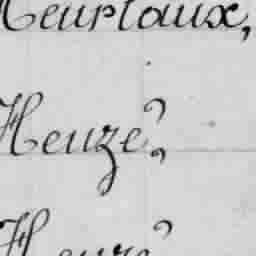 Heurtaux,
Heuzé,